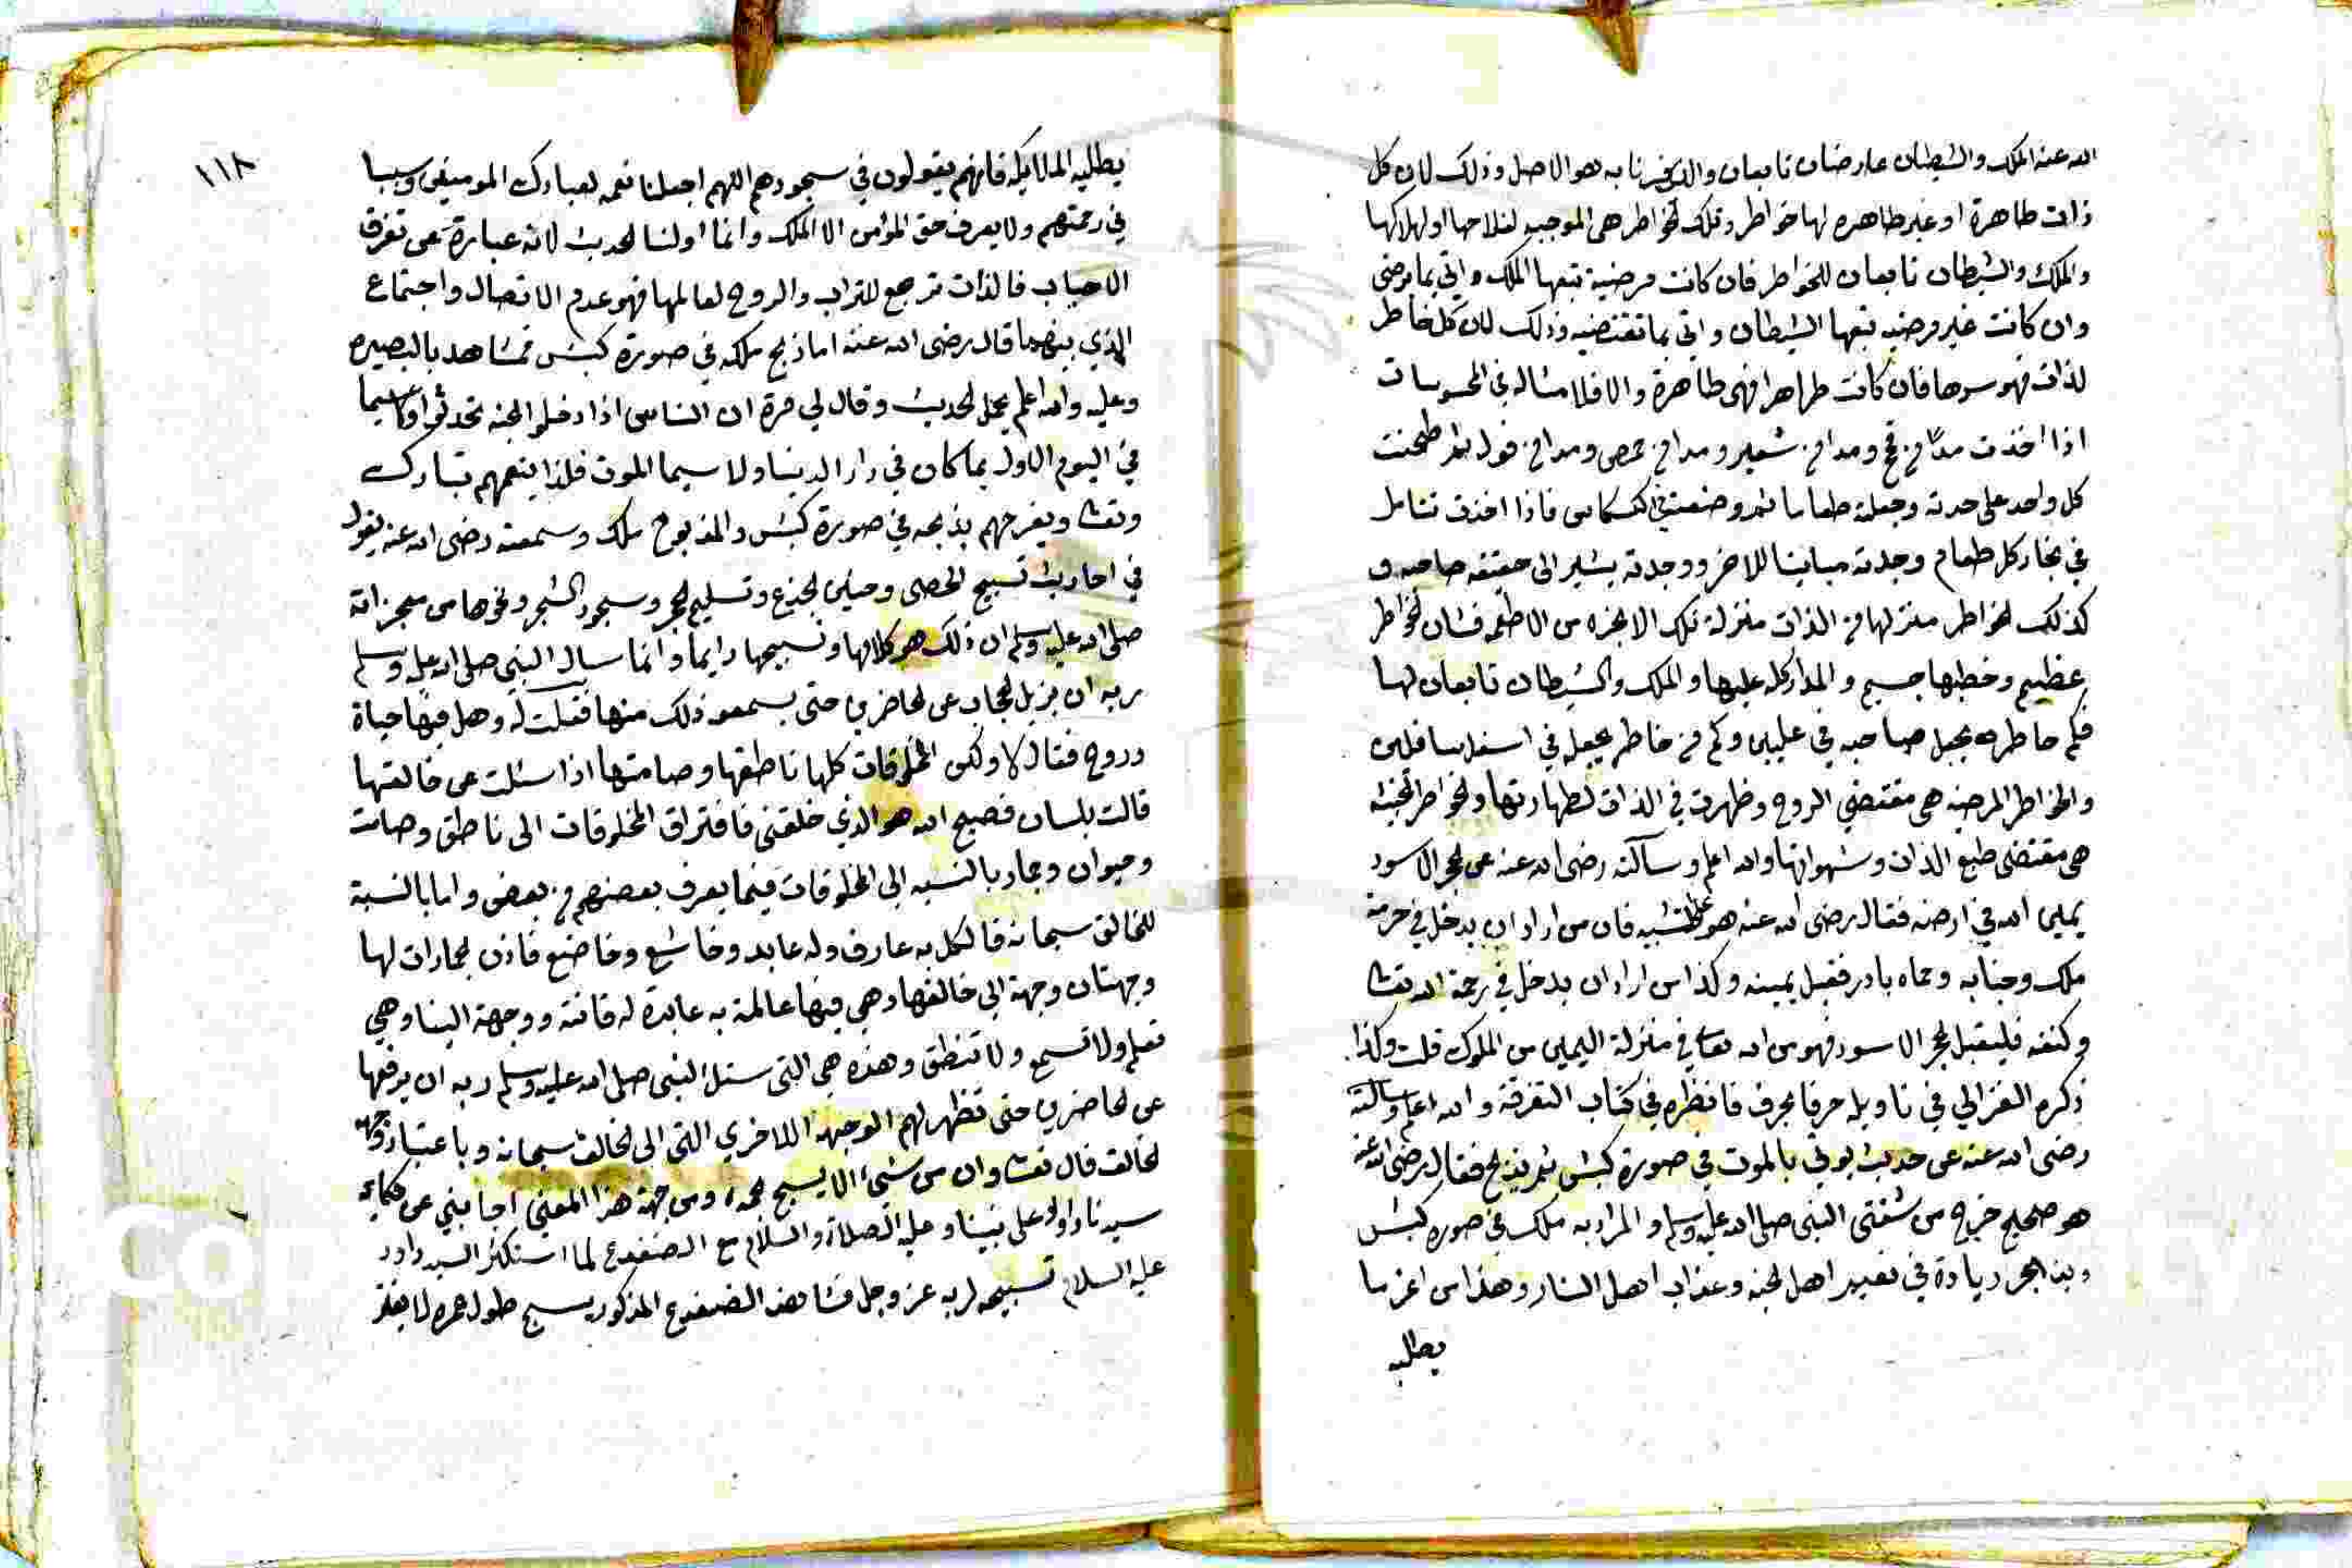 الله عنه الملك والشيطان عارضان تابعان والذي خبرنا به هو الاصل وذلك لان كل
ذات طاهرة او غير طاهره لها خواطر وتلك الخواطر هي الموجبه لفلاحها او لهلاكها
والملك والشيطان تابعان للخواطر فان كانت مرضية تبعها الملك واتي بما يرضي
وان كانت غير مرضيه تبعها الشيطان واتي بما تقتضيه وذلك لان كل خاطر
لذات فهو سرها فان كانت طاهرا فهي طاهرة والا فلا مثاله في المحسوسات
اذا اخذت مدا من قمح ومدا من شعير ومدا من حمص ومدا من فول ثم طحنت
كل واحد على حدته وجعلته طعاما ثم وضعته في الكسكاس فاذا اخذت تتامل
في بخار كل طعام وجدته مباينا للاخر ووجدته يشير الى حقيقه صاحبه و
كذلك الخواطر منزلها من الذات منزلة تلك الابخره من الاطعمه فشان الخواطر
عظيم وخطبها جسيم والمدار كله عليها والملك والشيطان تابعان لها
فكم خاطر يجعل صاحبه في عليين وكم من خاطر يجعله في اسفل سافلين
والخواطر المرضيه هي مقتضي الروح وظهرت في الذات لطهارتها والخواطر الخبيثه
هي مقتضى طبع الذات وشهواتها والله اعلم وسالته رضى الله عنه عن الحجر الاسود
يمين الله في ارضه فقال رضى الله عنه هو على التشبيه فان من اراد ان يدخل في حرمة
ملك وجنابه وحماه بادر فقبل يمينه وكذا من اراد ان يدخل في رحمة الله تعا
وكنفه فليقبل الحجر الاسود فهو من الله تعا في منزلة اليمين من الملوك قلت وكذا
ذكره الغزالي في تاويله حرفا بحرف فانظره في كتاب التفرقة والله اعلم وسالته
رضى الله عنه عن حديث يوتي بالموت في صورة كبش ثم يذبح فقال رضى الله عنه
هو صحيح خرج من شفتى النبي صلى الله عليه وسلم والمراد به ملك في صوره كبش
زيادة في نعيم اهل الجنه وعذاب اهل النار وهذا من اعز ما
يطلبه
١١٨
يطلبه الملائكه فانهم يقولون في سجودهم اللهم اجعلنا نعمه لعبادك المومنين وسببا
في رحمتهم ولا يعرف حق المؤمن الا الملك وانما اولنا الحديث لانه عبارة عن تفرق
الاحباب فالذات ترجع للتراب والروح لعالمها فهو عدم الاتصال واجتماع
الذي بينهما قال رضى الله عنه اما ذبح ملكه في صورة كبش فمشاهد بالبصيره
وعليه والله اعلم يحمل الحديث وقال لي مرة ان الناس اذا دخلوا الجنه تحدثوا لا سيما
في اليوم الاول بما كان في دار الدنيا ولا سيما الموت فلذا ينعمهم تبارك
وتعا ويفرحهم بذبحه في صورة كبش والمذبوح ملك وسمعته رضى الله عنه يقول
في احاديث تسبيح الحصى وحنين الجذع وتسليم الحجر وسجود الشجر ونحوها من معجزاته
صلى الله عليه وسلم ان ذلك هو كلامها وتسبيحها دايما وانما سال النبي صلى الله عليه وسلم
ربه ان يزيل الحجاب عن الحاضرين حتى يسمعو ذلك منها فقلت له وهل فيها حياة
وروح فقال لا ولكن المخلوقات كلها ناطقها وصامتها اذا سئلت عن خالقها
قالت بلسان فصيح الله هو الذي خلقنى فافتراق المخلوقات الى ناطق وصامت
وحيوان وجماد بالنسبه الى المخلوقات فيما يعرف بعضهم من بعض واما بالنسبة
للخالق سبحانه فالكل به عارف وله عابد وخاشع وخاضع فاذن الجمادات لها
وجهتان وجهة الى خالقها وهي فيها عالمة به عابدة له قانته ووجهة الينا وهي
تعلم ولا تسمع ولا تنطق وهذه هي التى سئل النبي صلى الله عليه وسلم ربه ان يرفعها
عن الحاضرين حتى تظهر لهم الوجهة الاخري التى الى الخالق سبحانه وباعتبار وجهة
الخالق قال تعا وان من شئ الا يسبح بحمده ومن جهة هذا المعني اجابني عن حكاية
سيدنا داود على نبينا وعليه الصلاة والسلام مع الضفدع لما استكثر السيد داود
عليه السلام تسبيحه لربه عز وجل فشاهد الضفدع المذكور يسبح طول عمره لا يفتر